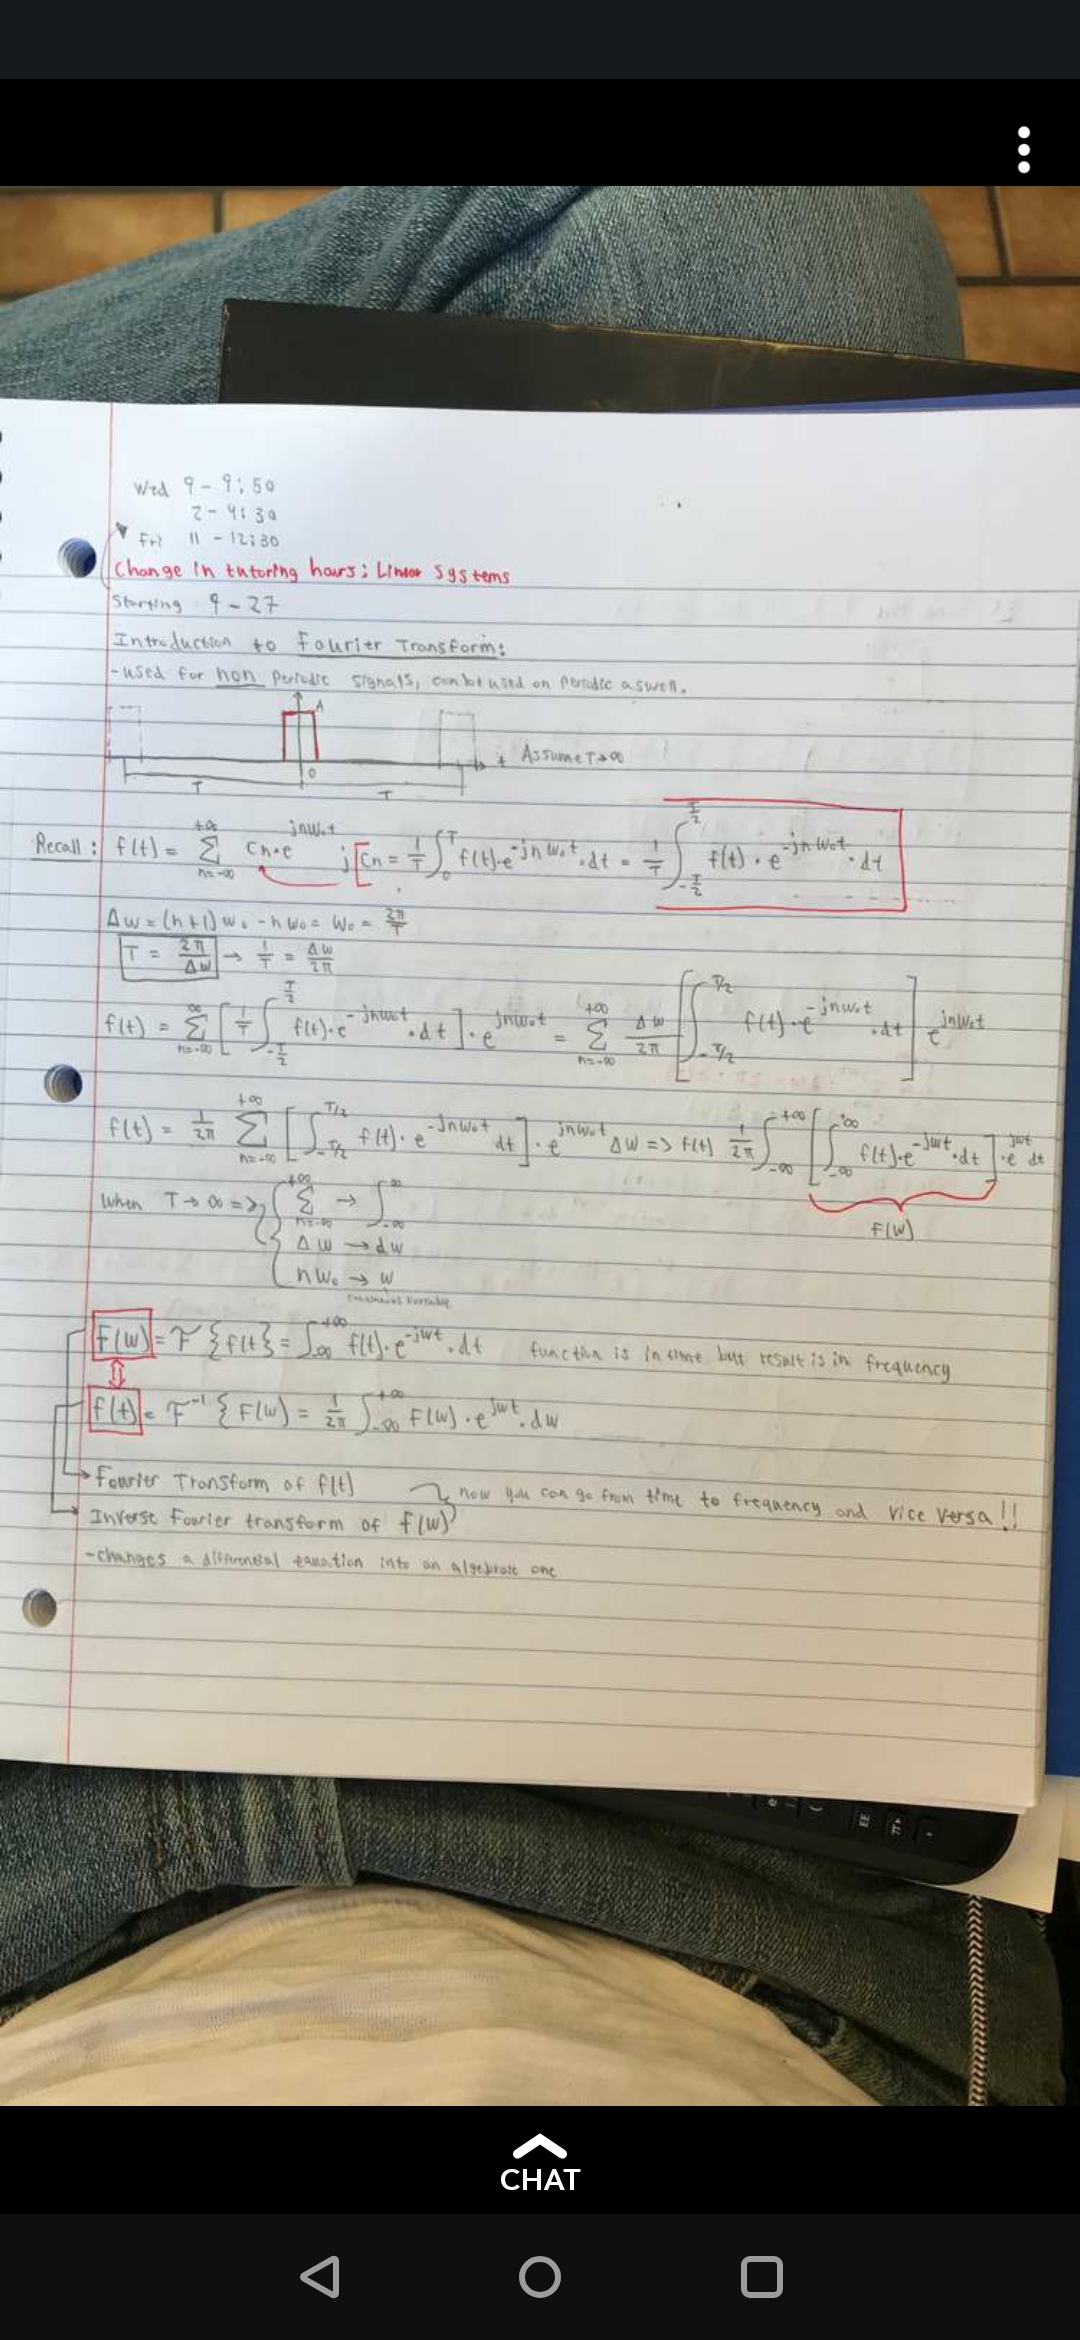 Wed 9 - 9:50
2 - 4:30
Fri 11 - 12:30
Change in tutoring hours: Linear Systems
Starting 9-27
Introduction to Fourier Transform:
- used for non periodic signals, can be used on periodic aswell.
A
t Assume T→∞
0
T T
Recall: f(t) = Σ_{n=-∞}^{+∞} Cn·e^{jnw₀t} ; [Cn = 1/T ∫_0^T f(t)·e^{-jnw₀t}·dt = 1/T ∫_{-T/2}^{T/2} f(t)·e^{-jnw₀t}·dt
Δw = (n+1)w₀ - nw₀ = w₀ = 2π/T
T = 2π/Δw → 1/T = Δw/2π
f(t) = Σ_{n=-∞}^{∞} [1/T ∫_{-T/2}^{T/2} f(t)·e^{-jnw₀t}·dt]·e^{jnw₀t} = Σ_{n=-∞}^{+∞} Δw/2π [∫_{-T/2}^{T/2} f(t)·e^{-jnw₀t}·dt] e^{jnw₀t}
f(t) = 1/2π Σ_{n=-∞}^{+∞} [∫_{-T/2}^{T/2} f(t)·e^{-jnw₀t} dt]·e^{jnw₀t} Δw => f(t) 1/2π ∫_{-∞}^{+∞} [∫_{-∞}^{∞} f(t)·e^{-jwt}·dt]·e^{jwt} dt
F(w)
When T→∞ => { Σ_{n=-∞}^{+∞} → ∫_{-∞}^{∞}
Δw → dw
nw₀ → w
continuous variable
F(w) = F{f(t} = ∫_{-∞}^{+∞} f(t)·e^{-jwt}·dt function is in time but result is in frequency
f(t) = F⁻¹{F(w) = 1/2π ∫_{-∞}^{+∞} F(w)·e^{jwt}·dw
Fourier Transform of f(t)
now you can go from time to frequency and vice versa!!
Inverse Fourier transform of F(w)
- changes a differential equation into an algebraic one
EE
π
CHAT